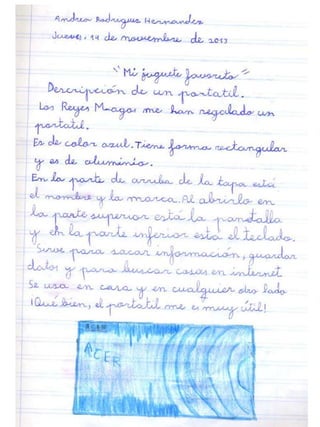 Andrea Rodríguez Hernández
Jueves, 14 de noviembre de 2013
"Mi juguete favorito"
Descripción de un portatil.
Los Reyes Magos me han regalado un
portatil.
Es de color azul. Tiene forma rectangular
y es de aluminio.
En la parte de arriba de la tapa está
el nombre y la marca. Al abrirlo en
la parte superior está la pantalla
y en la parte inferior está el teclado.
Sirve para sacar información, guardar
datos y para buscar cosas en internet
Se usa en casa y en cualquier otro lado
¡Qué bien, el portatil me es muy útil!
ACER
ACER